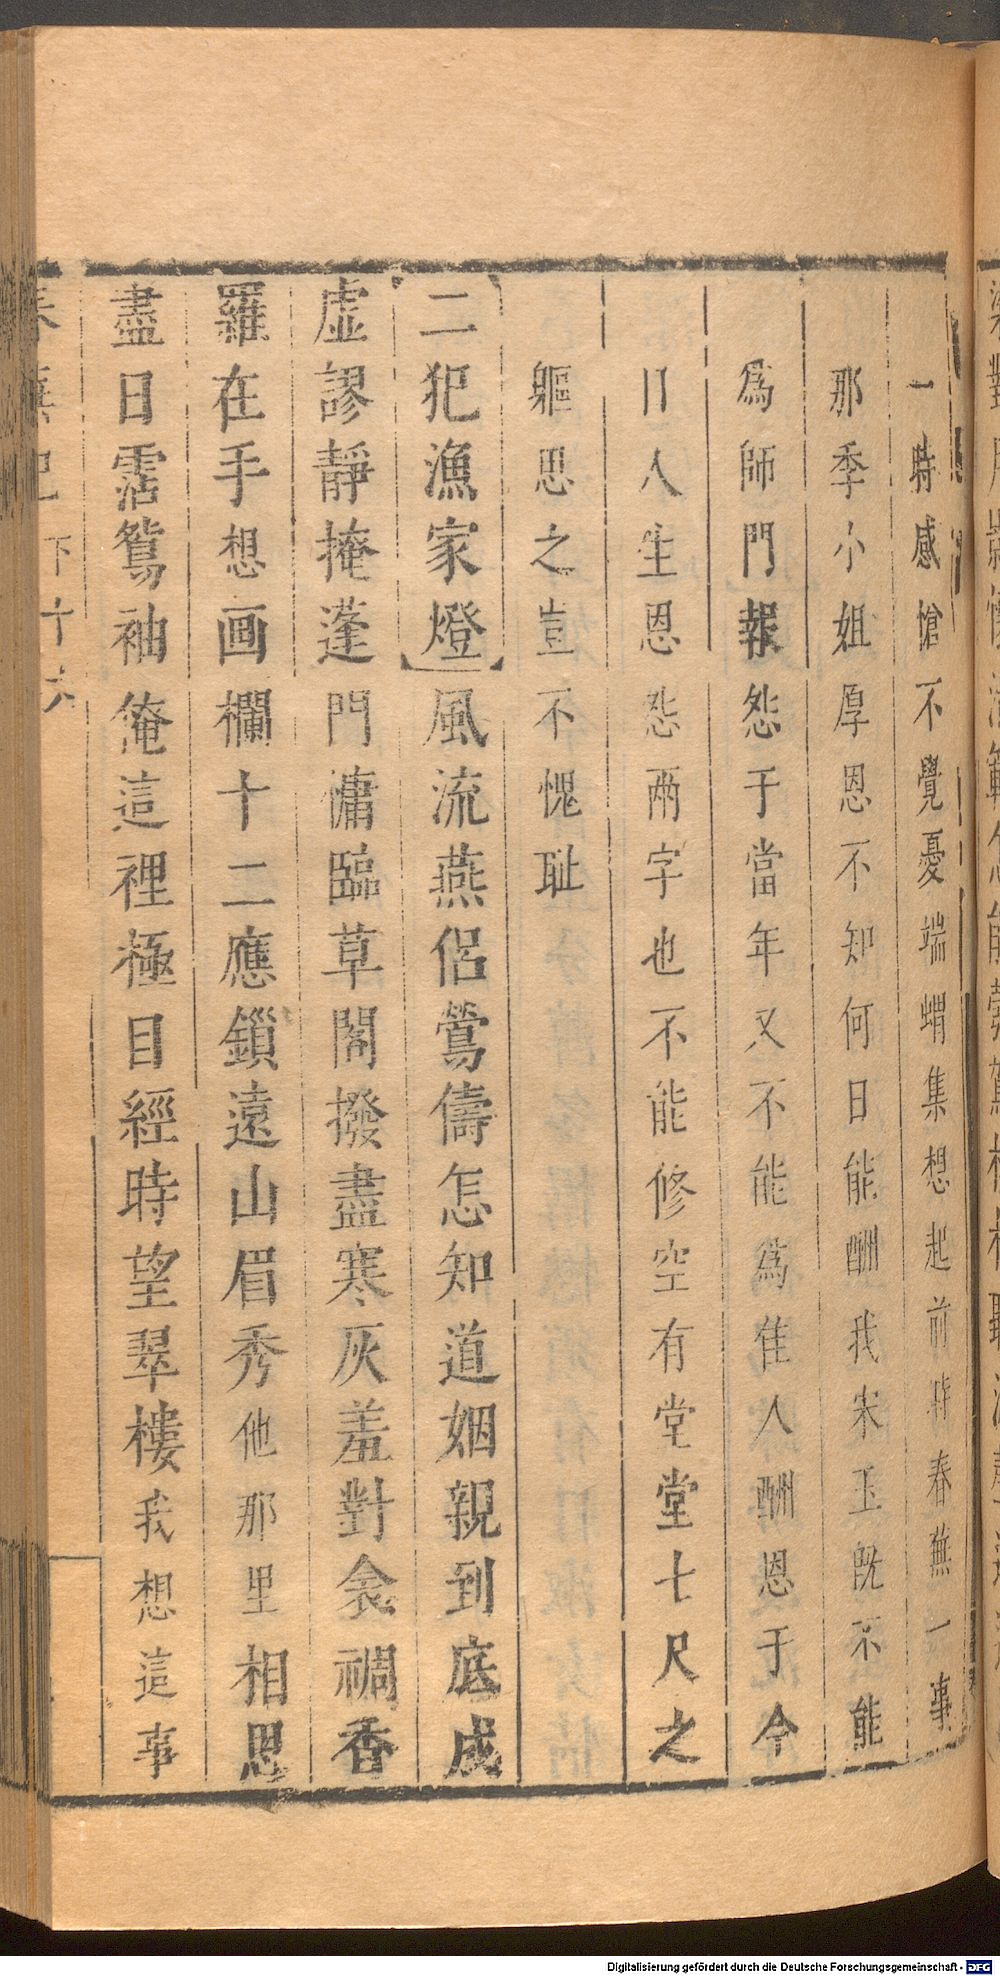 一時感愴不覺憂端蝟集想起前時春蕪一事
那季小姐厚恩不知何日能酬我宋玉旣不能
爲師門報怨于當年又不能爲佳人酬恩于今
日人生恩怨兩字也不能修空有堂堂七尺之
軀思之豈不愧耻
二犯漁家燈風流燕侶鶯儔怎知道姻親到底成
虛謬靜掩蓬門慵臨草閣撥盡寒灰羞對衾裯香
羅在手想画欄十二應鎖遠山眉秀他那里相思
盡日霑鴛袖俺這裡極目經時望翠樓我想這事
下十六
Digitalisierung gefördert durch die Deutsche Forschungsgemeinschaft - DFG